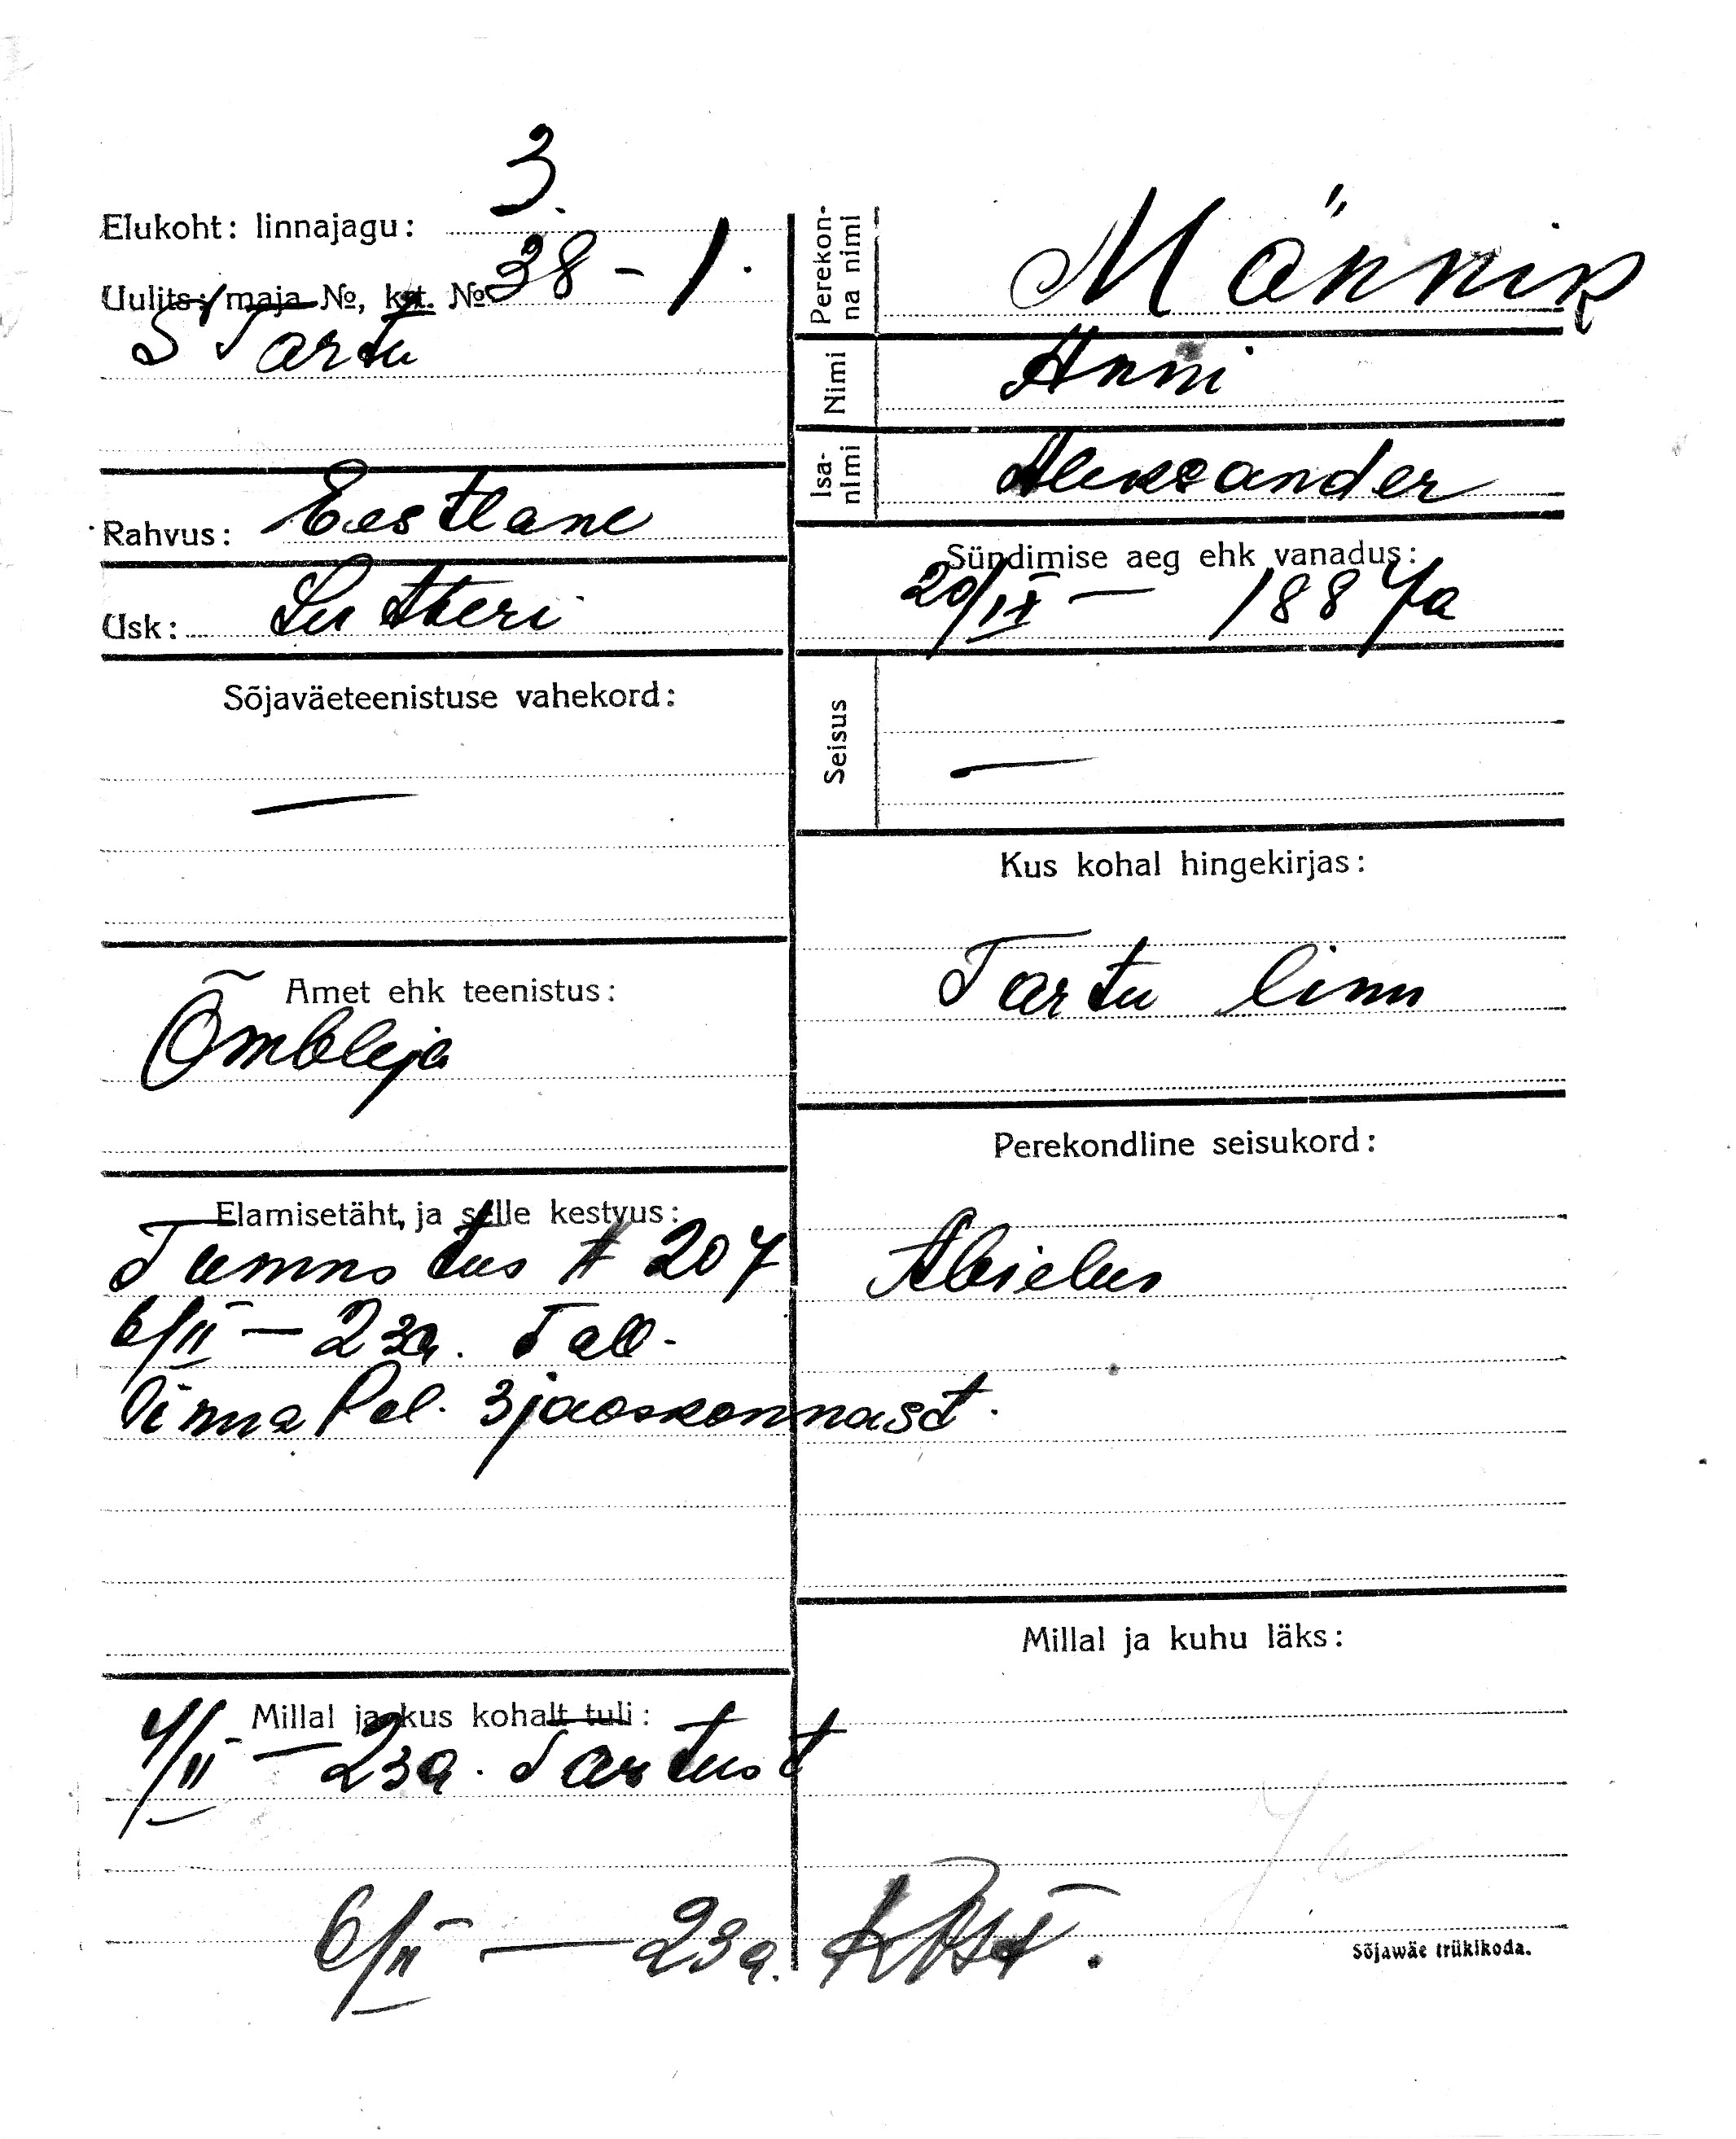 3.
Elukoht: linnajagu:
Uulits; maja No, krt. No 38 - 1.
S Tartu
Rahvus: Eestlane
Usk: Lutheri
Sõjaväeteenistuse vahekord:
—
Amet ehk teenistus:
Õmbleja
Elamisetäht, ja selle kestvus:
Tunnistus # 207
6/II — 23a. Tall-
linna Pol. 3 jaoskonnast.
Millal ja kus kohalt tuli:
4/II — 23a. Tartust
6/II — 23a.
Perekon-
na nimi
Männik
Nimi
Anni
Isa-
nimi
Aleksander
Sündimise aeg ehk vanadus:
20/IX — 1887a
Seisus
—
Kus kohal hingekirjas:
Tartu linn
Perekondline seisukord:
Abielus
Millal ja kuhu läks:
Sõjawäe trükikoda.